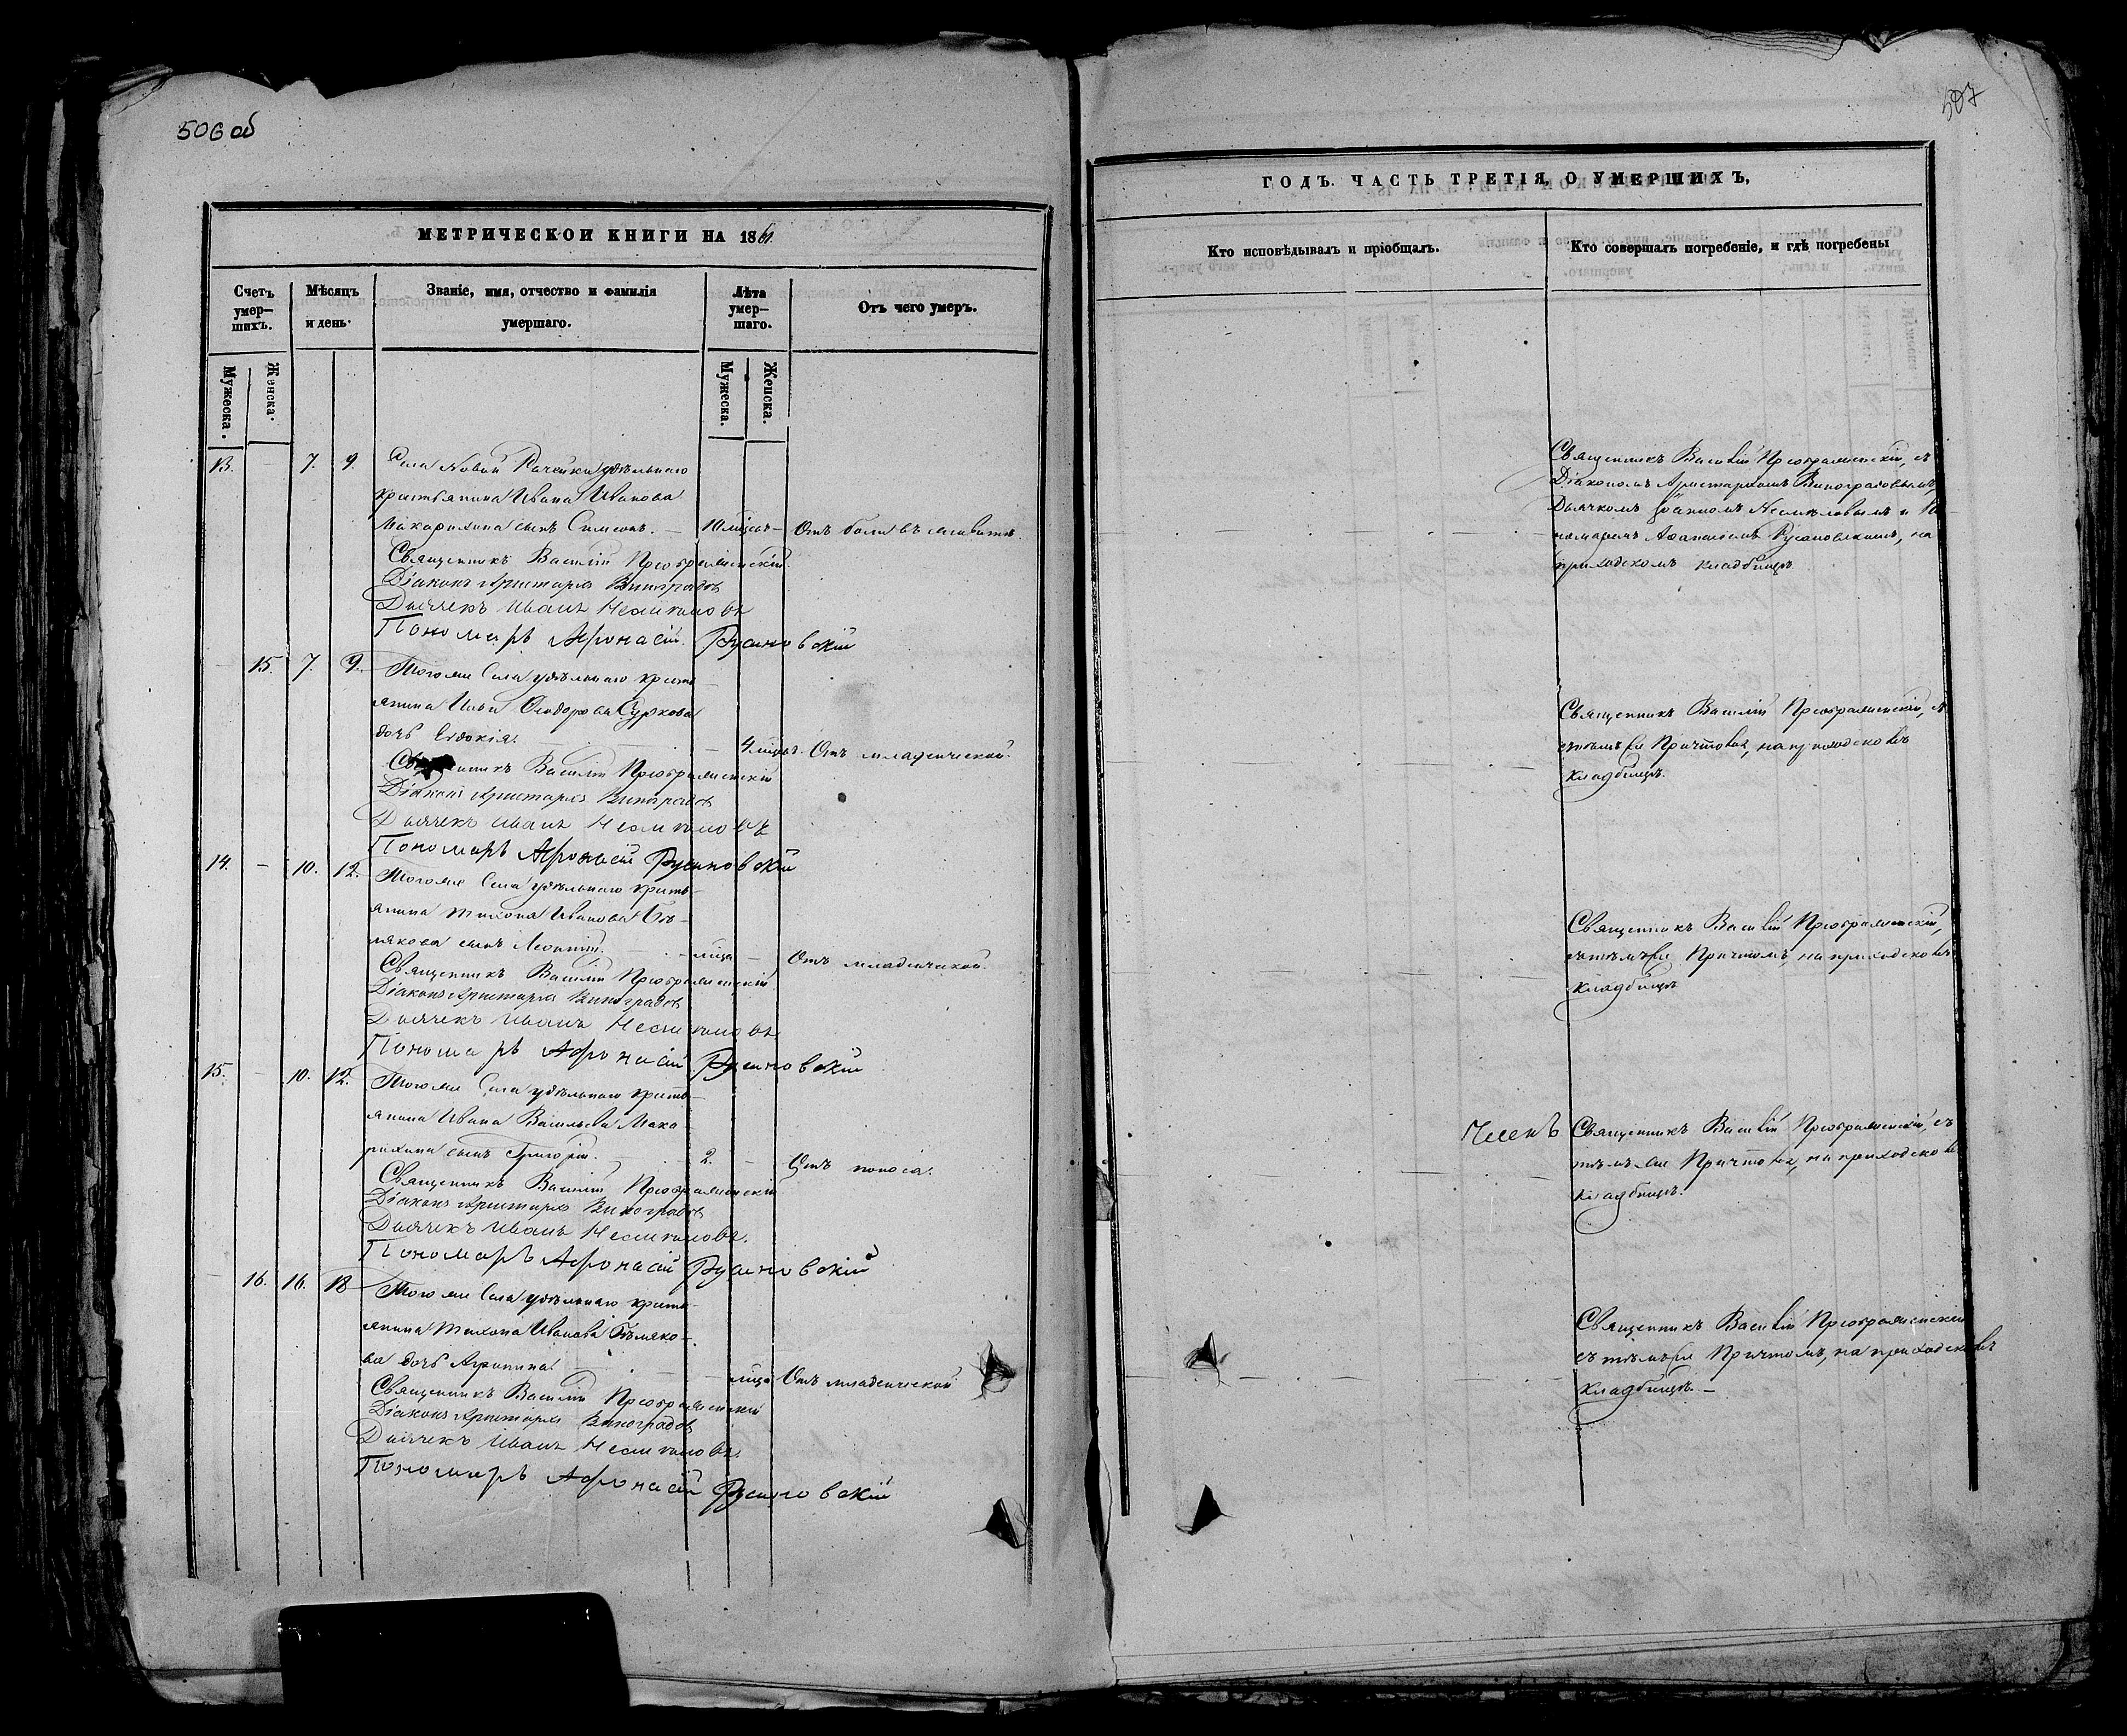 506 об
МЕТРИЧЕСКОЙ КНИГИ НА 1861.
Счетъ умер-шихъ.
Мѣсяцъ и день.
Званіе, имя, отчество и фамилія умершаго.
Лѣта умер-шаго.
Отъ чего умеръ.
Мужеска.
Женска.
Мужеска.
Женска.
13. - 7. 9. Села Новой Рачейки удѣльнаго
крестьянина Ивана Иванова
Макарихина сынъ Симеонъ. - 10 мѣсяц. - Отъ боли въ животѣ.
Священникъ Василій Преображенскій
Діаконъ Аристархъ Виноградовъ
Дьячекъ Иванъ
Пономарь Афонасій Русановскій
- 15. 7. 9. Того же Села удѣльнаго кресть-
янина Ильи Ѳеодорова Суркова
дочь Евдокія. - 4 мѣсяц. Отъ младенческой.
Священникъ Василій Преображенскій
Діаконъ Аристархъ Виноградовъ
Дьячекъ Иванъ
Пономарь Афонасій Русановскій
14. - 10. 12. Того же Села удѣльнаго кресть-
янина Тихона Иванова
сынъ Леонтій. - мѣсяца - Отъ младенческой.
Священникъ Василій Преображенскій
Діаконъ Аристархъ Виноградовъ
Дьячекъ Иванъ
Пономарь Афонасій Русановскій
15. - 10. 12. Того же Села удѣльнаго кресть-
янина Ивана Васильева Мака-
рихина сынъ Григорій. - 2. - Отъ поноса.
Священникъ Василій Преображенскій
Діаконъ Аристархъ Виноградовъ
Дьячекъ Иванъ
Пономарь Афонасій Русановскій
- 16. 16. 18 Того же Села удѣльнаго кресть-
янина Тихона Иванова
ва дочь Агрипина. - мѣсяца Отъ младенческой
Священникъ Василій Преображенскій
Діаконъ Аристархъ Виноградовъ
Дьячекъ Иванъ
Пономарь Афонасій Русановскій
507
ГОДЪ. ЧАСТЬ ТРЕТІЯ, О УМЕРШИХЪ,
Кто исповѣдывалъ и пріобщалъ.
Кто совершалъ погребеніе, и гдѣ погребены
Священникъ Василій Преображенскій, съ
Діакономъ Аристархомъ Виноградовымъ,
Дьячкомъ Іоанномъ и По-
номаремъ Афанасіемъ Русановскимъ, на
приходскомъ кладбищѣ
Священникъ Василій Преображенскій, съ
тѣмъ же Причтомъ, на приходскомъ
кладбищѣ.
Священникъ Василій Преображенскій,
съ тѣмъ же Причтомъ, на приходскомъ
кладбищѣ
Священникъ Василій Преображенскій, съ
тѣмъ же Причтомъ, на приходскомъ
кладбищѣ.
Священникъ Василій Преображенскій
съ тѣмъ же Причтомъ, на приходскомъ
кладбищѣ. -